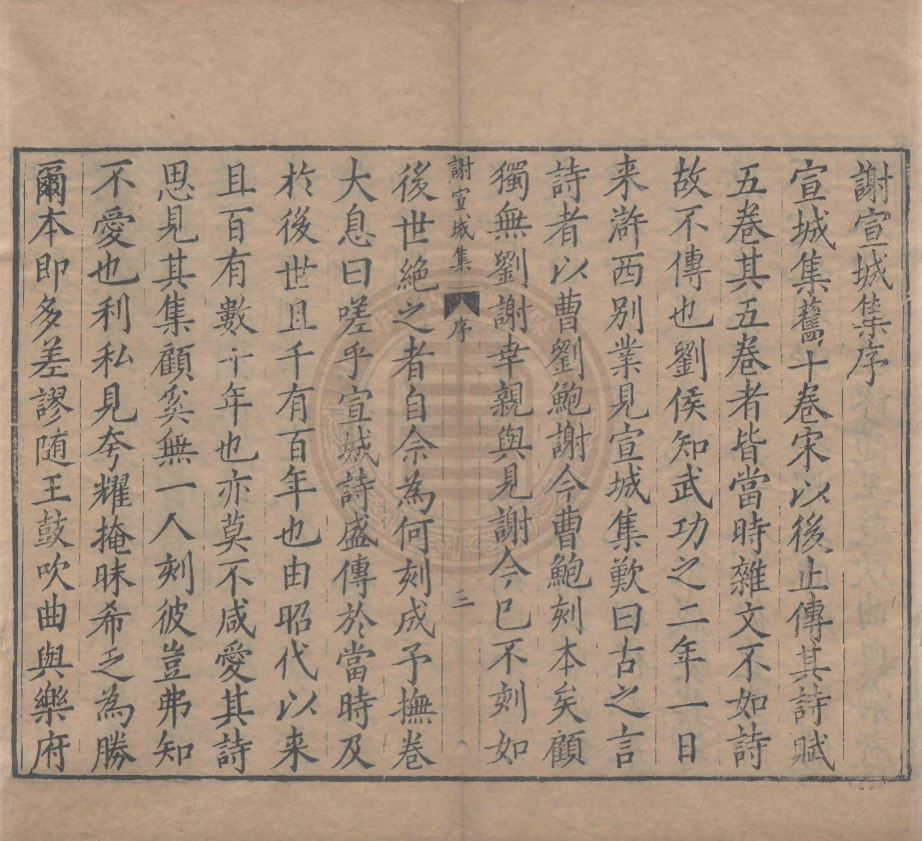 謝宣城集序
宣城集舊十卷宋以後止傳其詩賦
五卷其五卷者皆當時雜文不如詩
故不傳也劉侯知武功之二年一日
来滸西別業見宣城集歎曰古之言
詩者以曹劉鮑謝今曹鮑刻本矣顧
獨無劉謝幸親與見謝今巳不刻如
謝宣城集 序 三
後世絶之者自佘為何刻成予撫巻
大息曰嗟乎宣城詩盛傳於當時及
於後世且千有百年也由昭代以来
且百有數十年也亦莫不咸愛其詩
思見其集顧奚無一人刻彼豈弗知
不愛也利私見夸耀掩昧希乏為勝
爾本即多差謬随王鼓吹曲與樂府